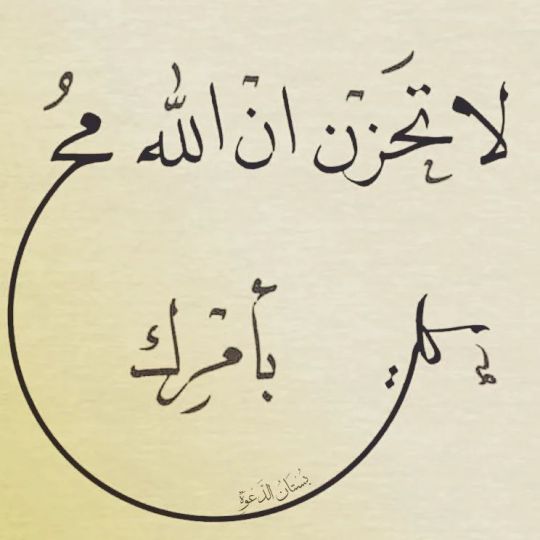 لا تَحزنْ انْ الله مُحـ
ـيط بأمْرِك
بُسْتَانُ الدَّعْوَة